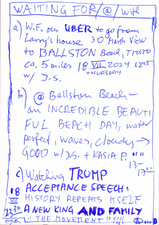 WAITING FOR/@/ Wife
a) W.F. our UBER to go from
Larry's house 30 North View
to BALLSTON Beach, Truro
ca. 5 miles 18 VII 2024
THURSDAY
w/ J.S.
b) @ Ballston Beach -
an INCREDIBLE BEAUTI
FUL BEACH DAY, water
perfect, waves, cloudy →
GOOD w/ J.S. + KASIA P.
c) Watching TRUMP
ACCEPTANCE SPEECH:
HISTORY REPEATS ITSELF
A NEW KING AND FAMILY
"THE MOVEMENT" !!!!